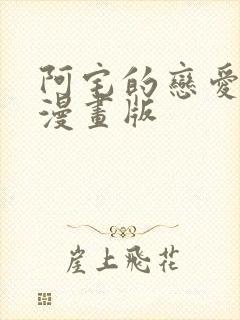 阿宅的戀愛
漫畫版
崖上飛花